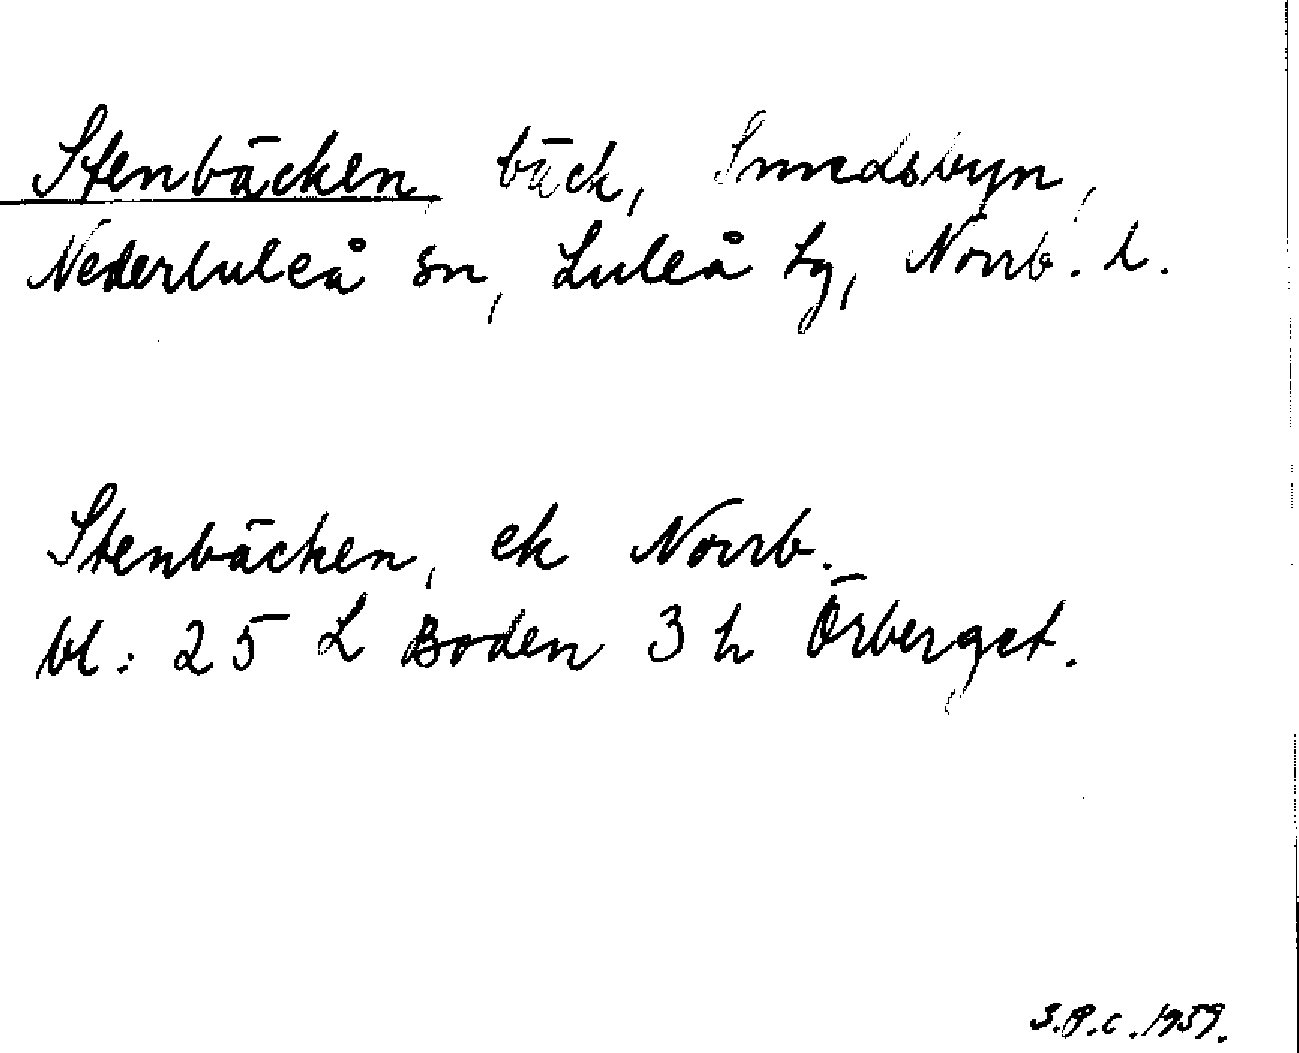 Stenbäcken, bäck, Smedsbyn,
Nederluleå sn, Luleå tg, Norrb. l.
Stenbäcken, ek Norrb.
bl: 25 L Boden 3 h Örberget.
S.P.C. 1959.